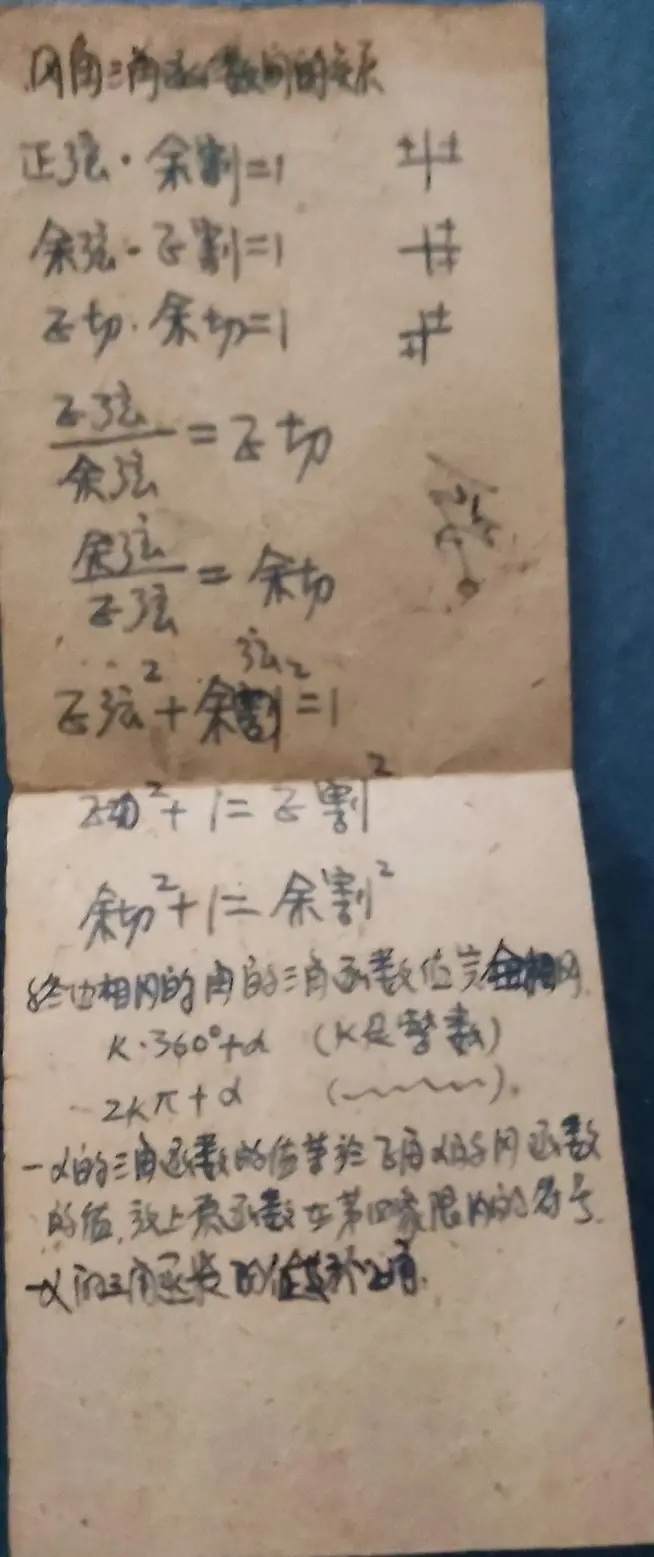 同角三角函数间的关系
正弦·余割=1
余弦·正割=1
正切·余切=1
正弦/余弦=正切
余弦/正弦=余切
弦
正弦²+余割²=1
正切²+1=正割²
余切²+1=余割²
终边相同的角的三角函数值完全相同.
K·360°+α (K是整数)
2Kπ+α ( ).
-α的三角函数的值等於正角α的同函数
的值,放上原函数在第四象限内的符号.
-α的三角函数的值等於正角.